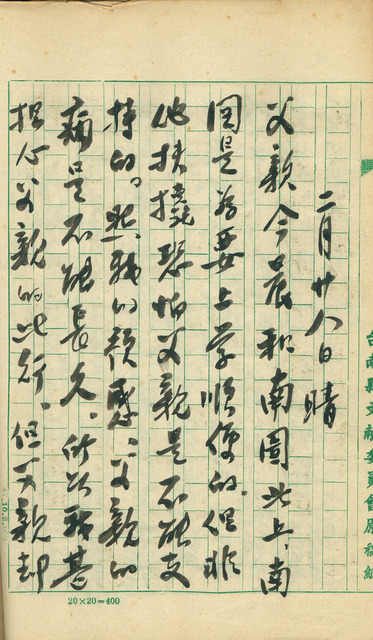 二月廿八日晴
父親今晨和南圖北上，南
圖是為要上学順便的。但非
他扶擾我恐怕父親是不能支
持的。照我的預感，父親的
病是不能長久。所以我甚
担心父親的此行。但父親却
台南縣文献委員會原稿紙
20×20=400